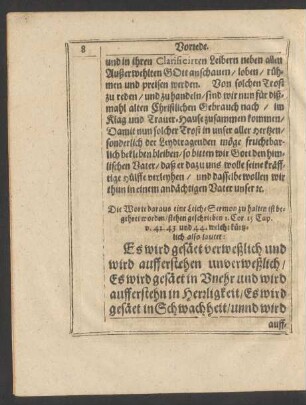 8 Vorrede.
und in ihren Clarificirten Leibern neben allen
Außerwehlten GOtt anschauen / loben / rüh-
men und preisen werden. Von solchen Trost
zu reden / und zu handeln / sind wir nun für diß-
mahl alten Christlichen Gebrauch nach / im
Klag und Trauer-Hause zusammen kommen /
Damit nun solcher Trost in unser aller Hertzen /
sonderlich der Leydtragenden möge fruchtbar-
lich bekleben bleiben / so bitten wir Gott den him̃-
lischen Vater / daß er dazu uns wolle seine kräff-
tige Hülffe verleyhen / und dasselbe wollen wir
thun in einem andächtigen Vater unser ꝛc.
Die Worte daraus eine Leich-Sermon zu halten ist be-
gehret worden / stehen geschrieben 1. Cor. 15 Cap.
v. 42. 43 und 44. welche kürtz-
lich also lauten:
Es wird gesäet verweßlich und
wird aufferstehen unverweßlich /
Es wird gesäet in Unehr und wird
aufferstehn in Herrligkeit / Es wird
gesäet in Schwachheit / unnd wird
auff-